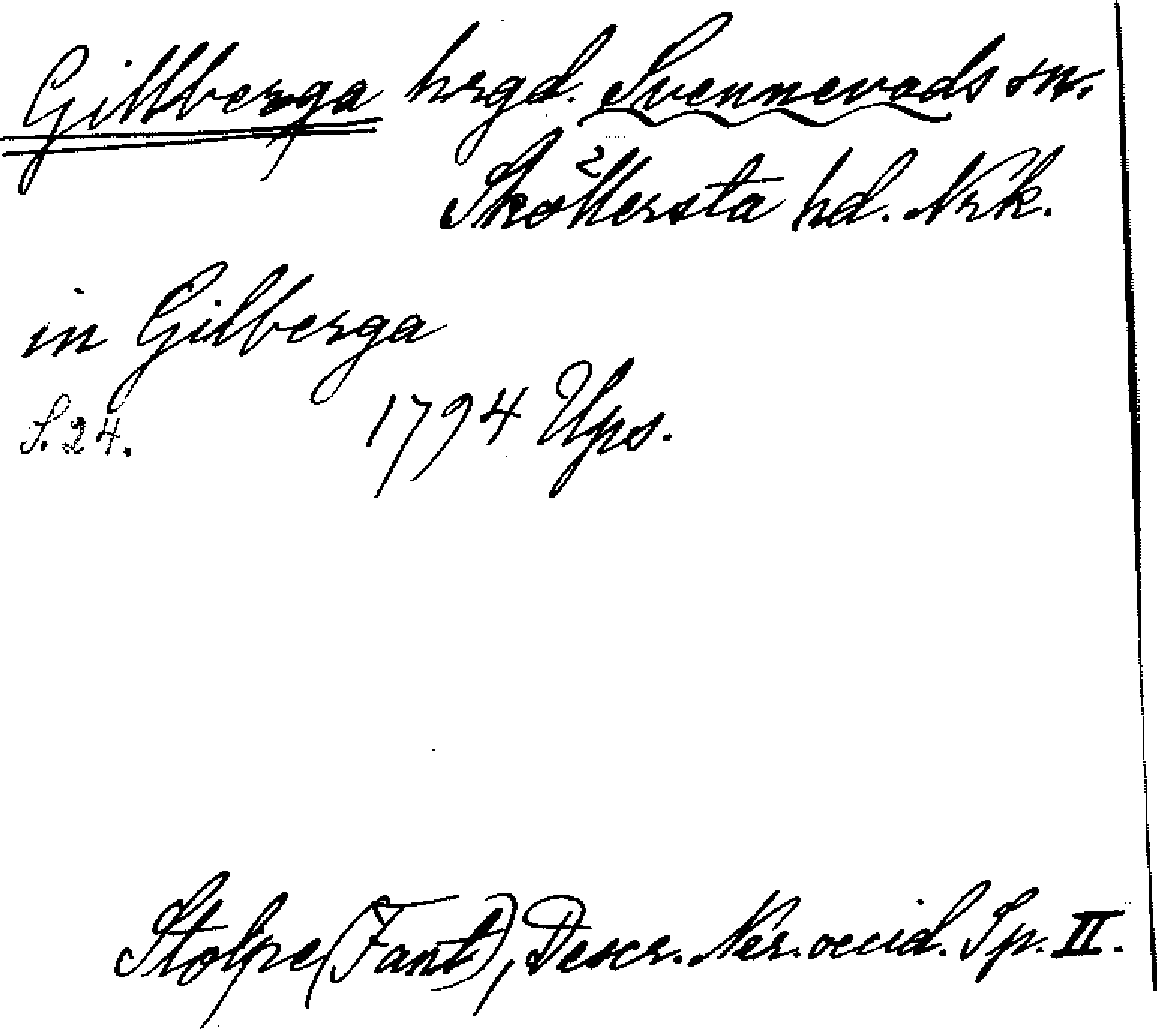 Gillberga hrgd. Svennevads sn.
Sköllersta hd. Nrk.
in Gilberga
S. 24. 1794 Ups.
Stolpe (Fant), Descr. Ner. occid. Sp. II.